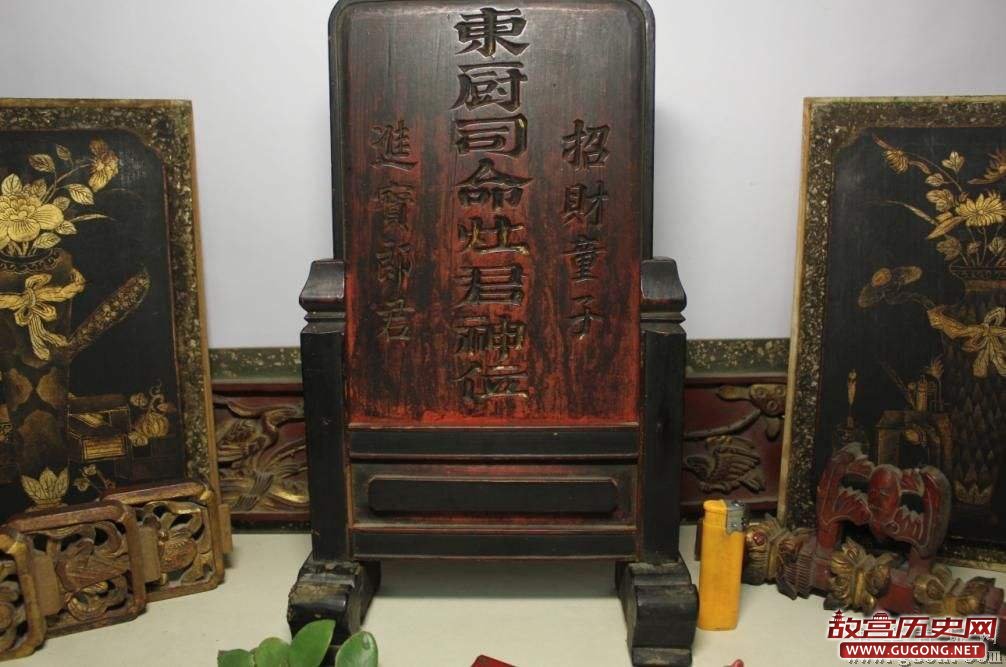 招財童子
東厨司命灶君神位
進寳郎君
故宫历史网
WWW.GUGONG.NET